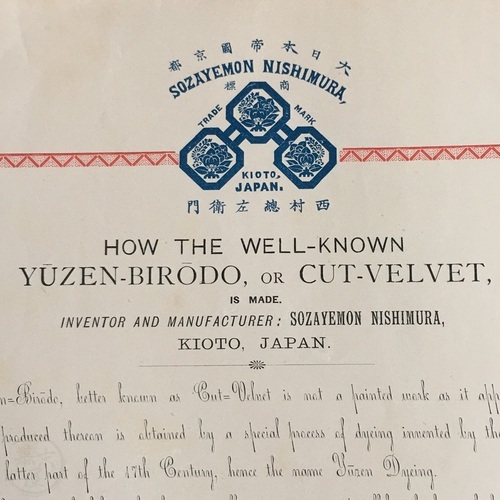 大日本帝國京都
SOZAYEMON NISHIMURA,
商標
TRADE MARK
KIOTO,
JAPAN.
西村總左衛門
HOW THE WELL-KNOWN
YŪZEN-BIRŌDO, OR CUT-VELVET,
IS MADE.
INVENTOR AND MANUFACTURER: SOZAYEMON NISHIMURA,
KIOTO, JAPAN.
n=Birōdo, better known as Cut=Velvet is not a painted work as it app
produced thereon is obtained by a special process of dyeing invented by th
latter part of the 17th Century, hence the name Yūzen Dyeing.